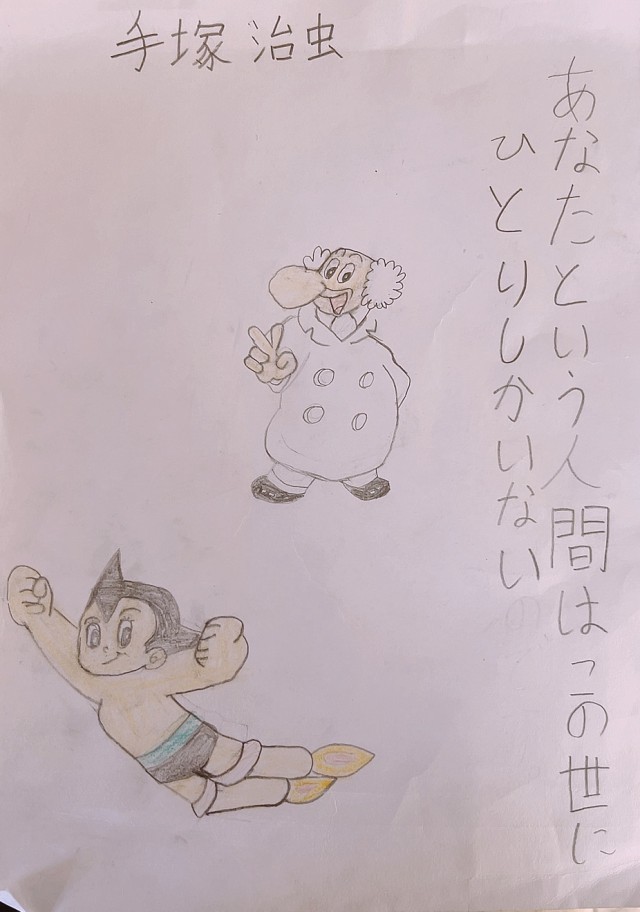 手塚治虫
あなたという人間はこの世に
ひとりしかいない